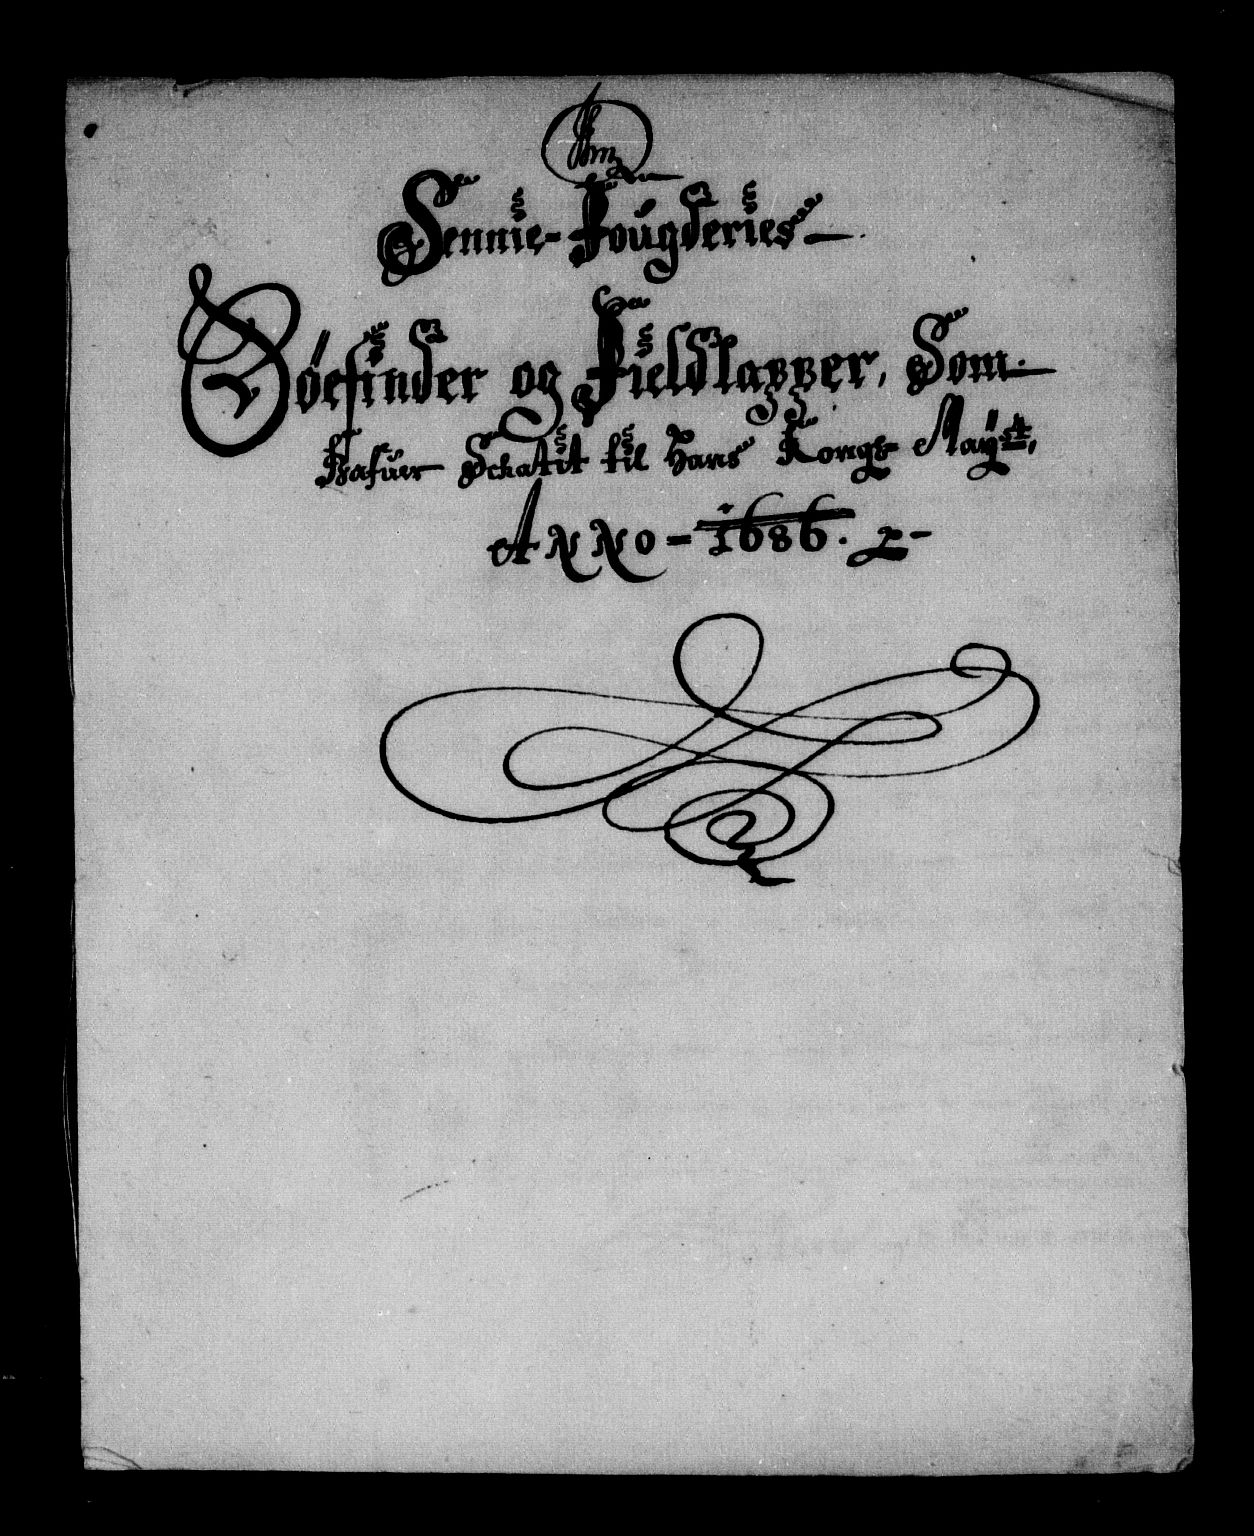 Sennie-Fougderies
Søefinder og Fieldlapper, Som
Hafuer Schatit til Hans Kongs Mayᵗ,
ANNO - 1686.